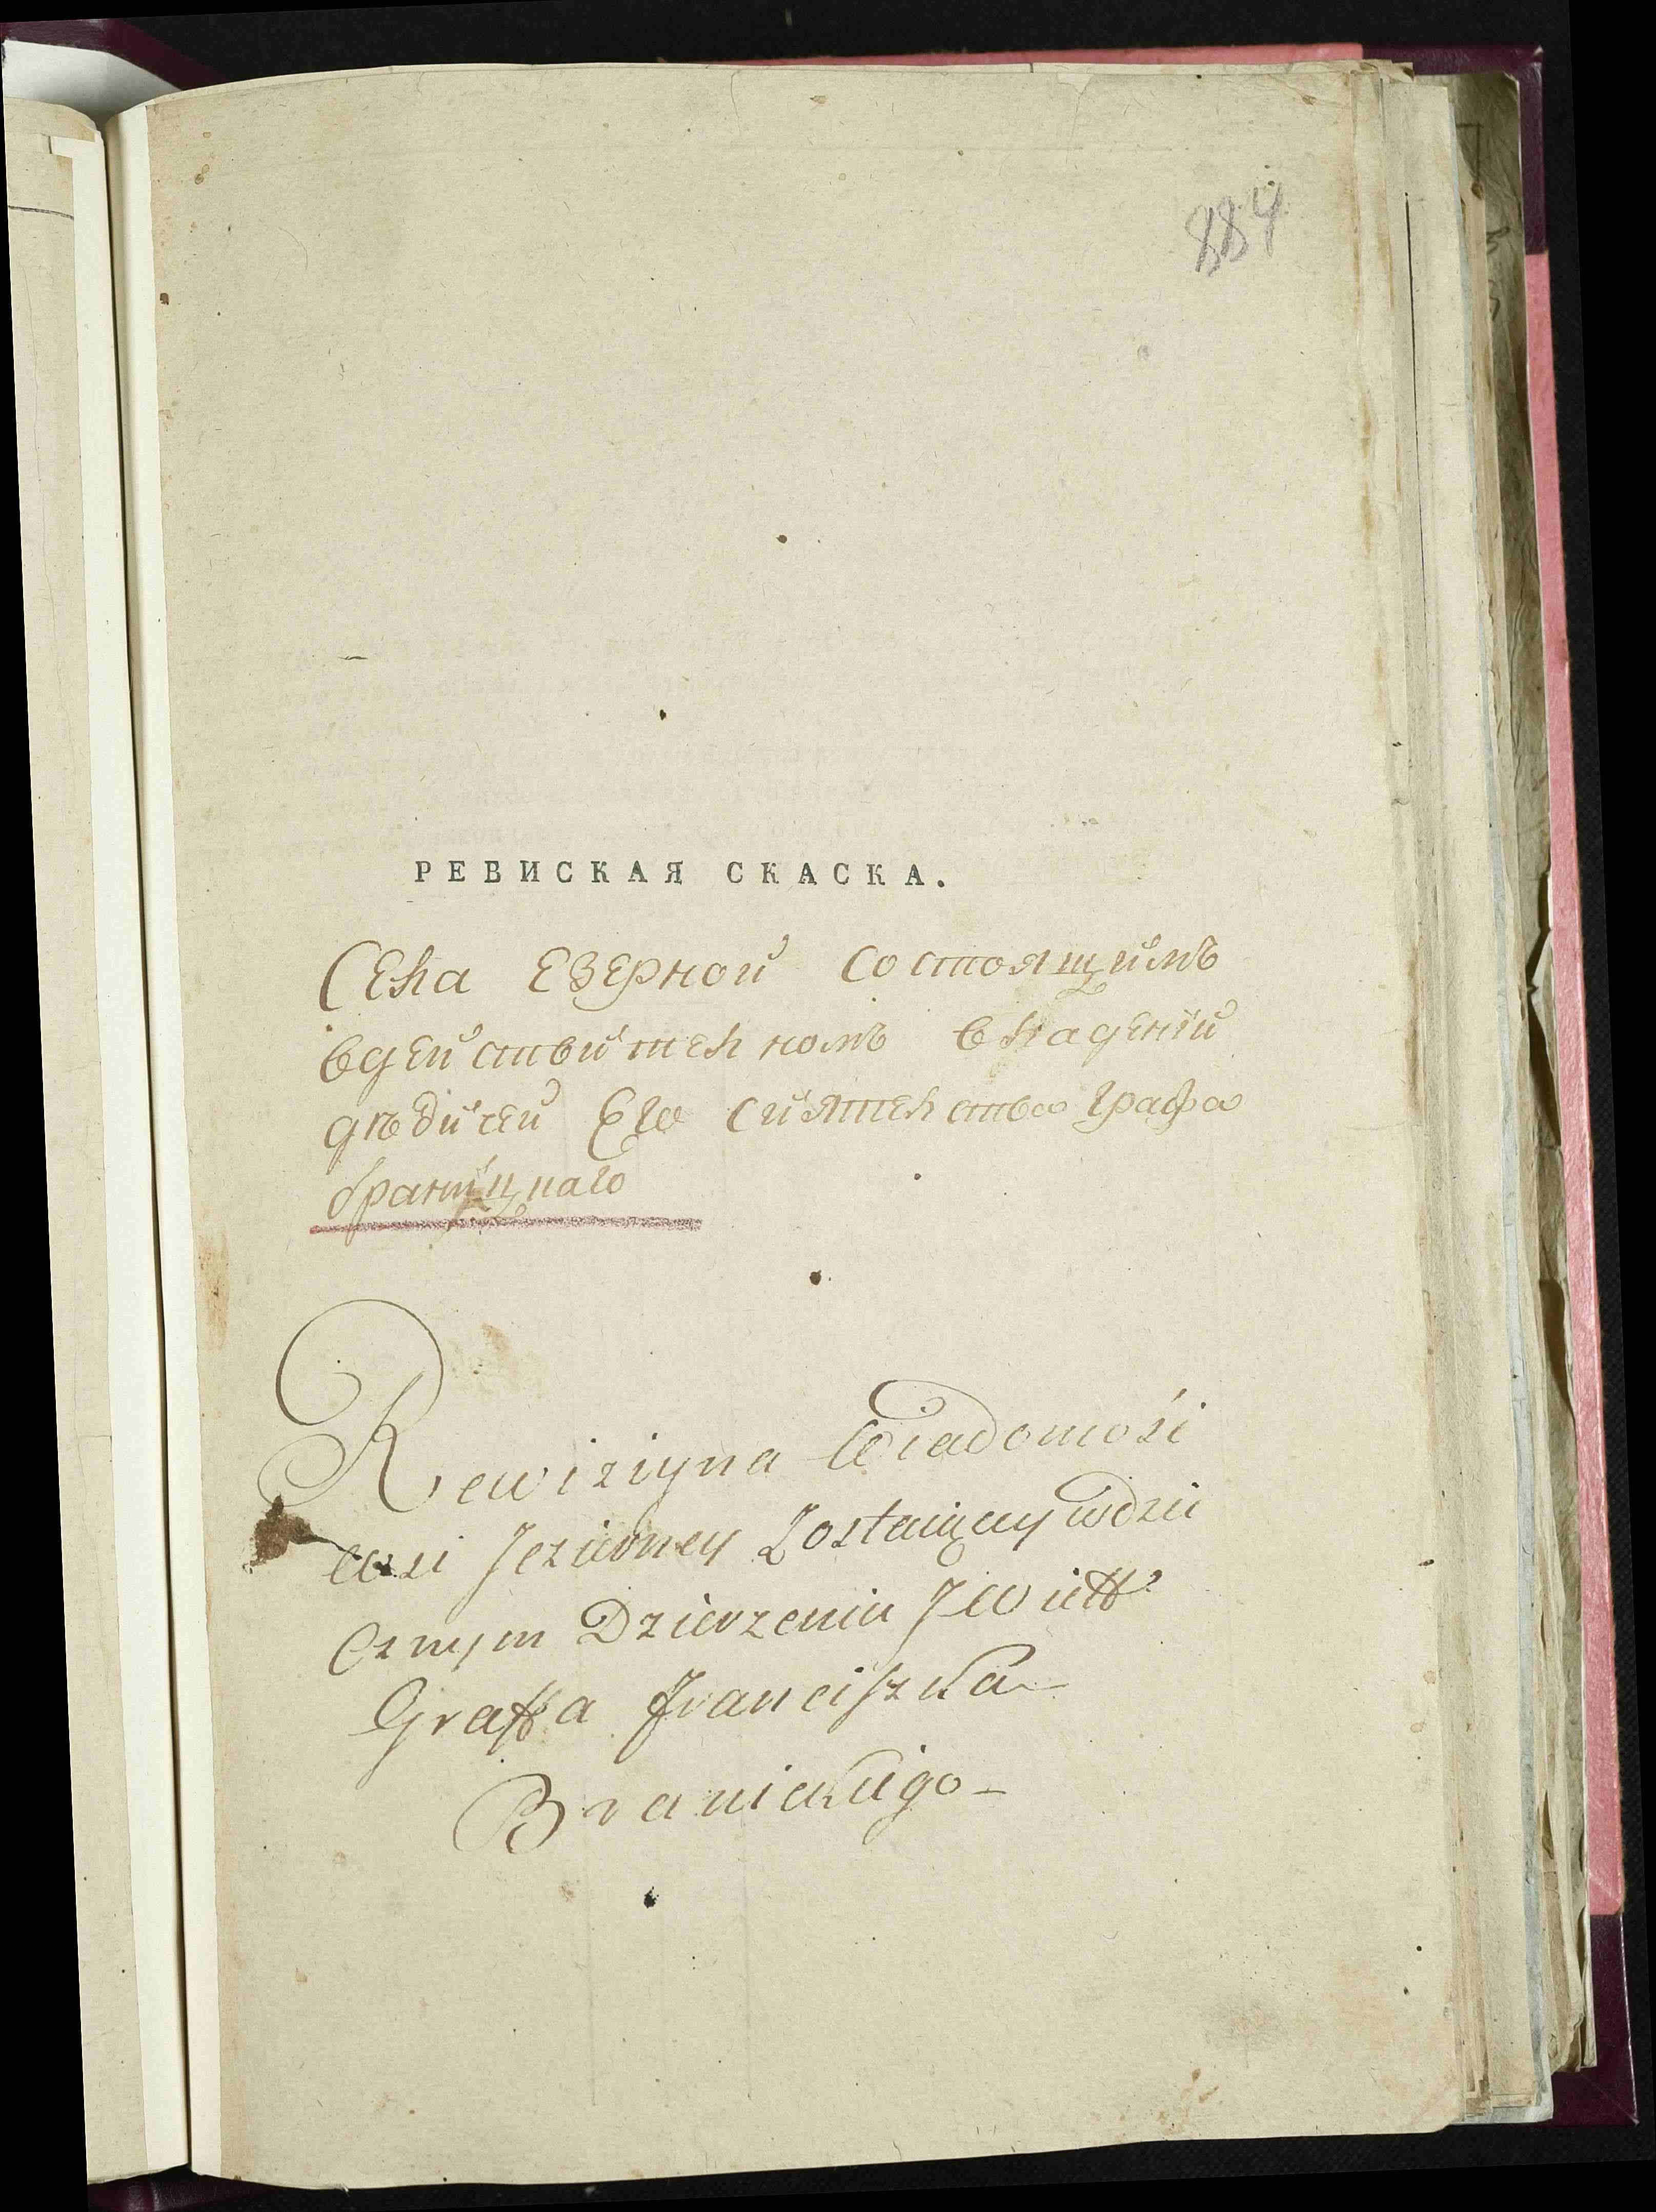 884
РЕВИСКАЯ СКАСКА.
Села Езерной состоящимъ
вдействителномъ владении
дѣдичей Его Сиятелства Графа
браницкаго
Rewiziyna Wiadomość
wsi Jeziorney Zostaiącey wdzie
Dzierzeniu JW
Graffa Franciszka
Branickiego